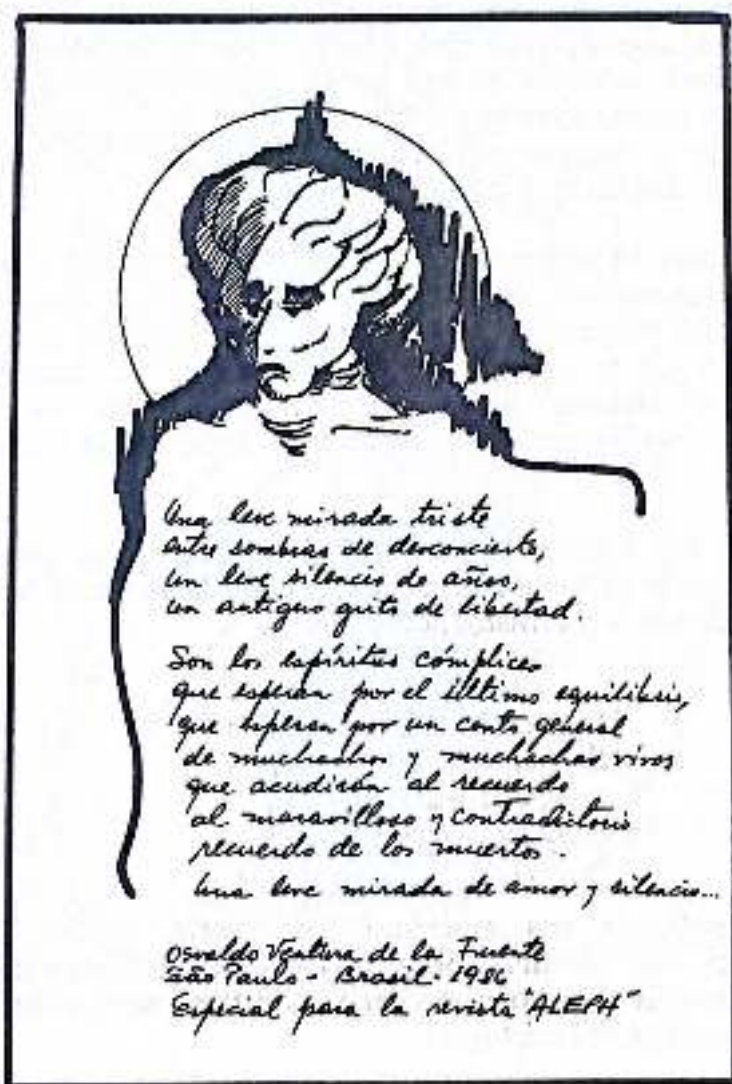 Una leve mirada triste
entre sombras de desconcierto,
un leve silencio de años,
un antiguo grito de libertad.
Son los espíritus cómplices
que esperan por el último equilibrio,
que esperan por un canto general
de muchachos y muchachas vivos
que acudirán al recuerdo
al maravilloso y contradictorio
recuerdo de los muertos.
Una leve mirada de amor y silencio...
Osvaldo Ventura de la Fuente
São Paulo - Brasil - 1986
Especial para la revista "ALEPH"